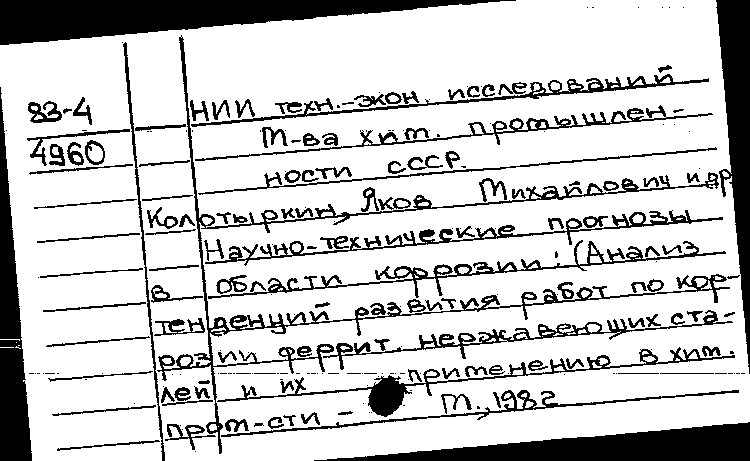 83-4 НИИ техн.-экон. исследований
4960 М-ва хим. промышлен-
ности СССР.
Колотыркин, Яков Михайлович и др.
Научно-технические прогнозы
в области коррозии: (Анализ
тенденций развития работ по кор-
розии феррит. нержавеющих ста-
лей и их применению в хим.
пром-сти.- М., 1982